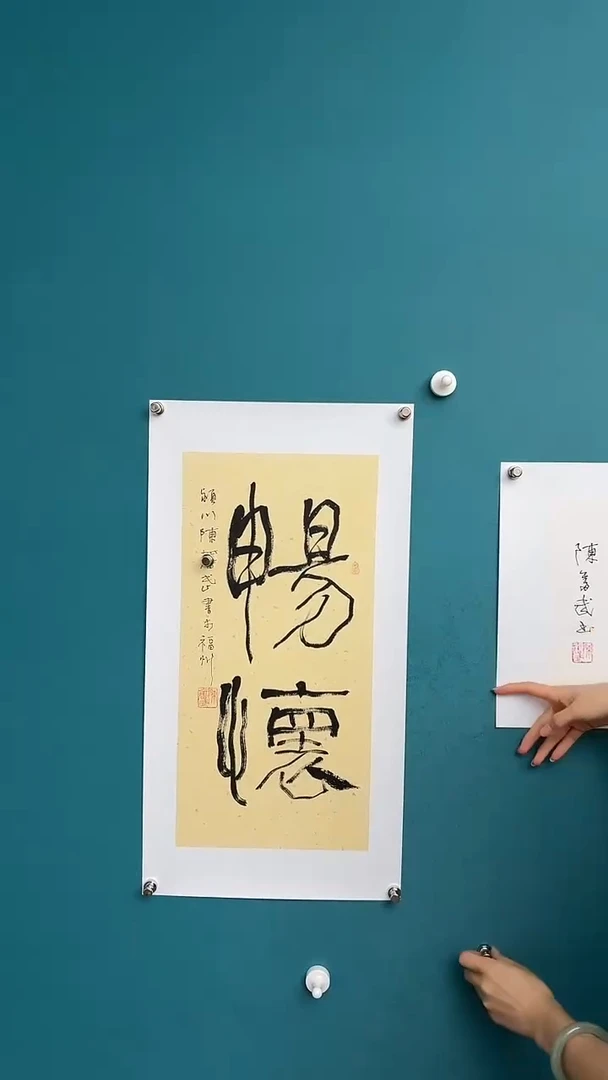 暢懷
潁川陳奮武書於福州
陳奮武書